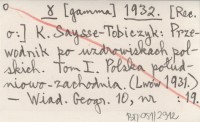 o γ [gamma] 1932. [Rec.
o:] K. Saysse-Tobiczyk: Prze-
wodnik po uzdrowiskach pol-
skich. Tom I. Polska połud-
niowo-zachodnia. (Lwów 1931.)
— Wiad. Geogr. 10, nr : 19.